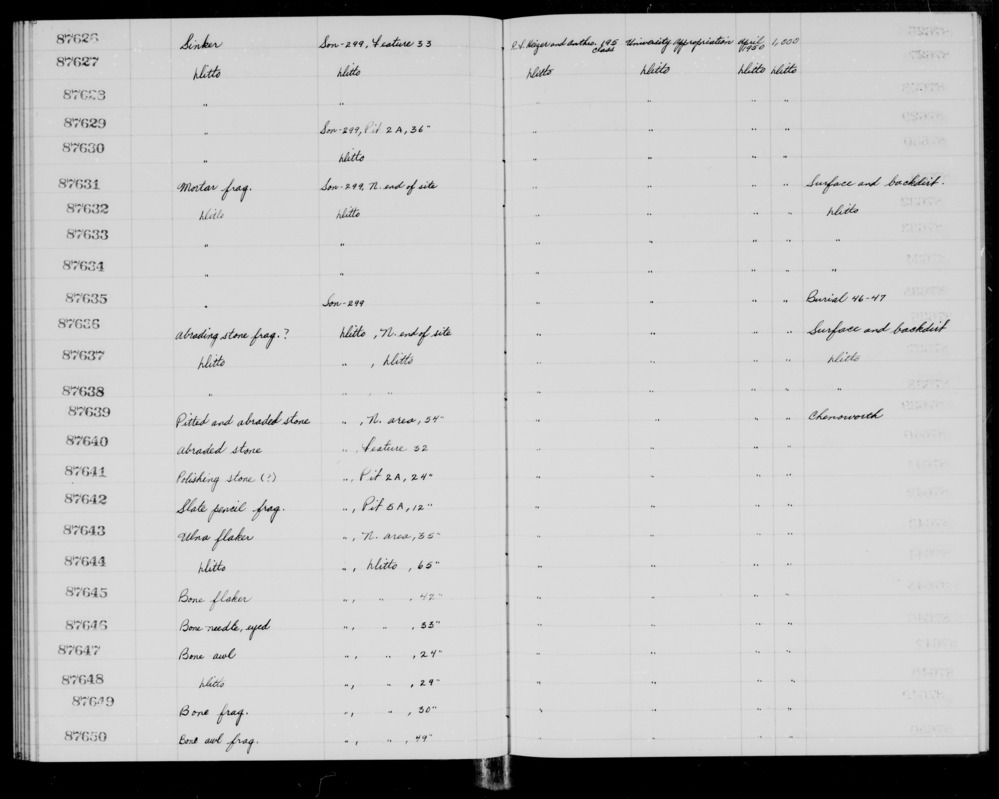 87626 Sinker Son-299, Feature 33 R.F. Heizer and Anthro. 195 class University Appropriation April 1950 1,000
87627 Ditto Ditto Ditto Ditto Ditto Ditto
87628 " " " " " "
87629 " Son-299, Pit 2A, 36" " " " "
87630 " Ditto " " " "
87631 Mortar frag. Son-299, N. end of site " " " " Surface and backdirt.
87632 Ditto Ditto " " " " Ditto
87633 " " " " " " "
87634 " " " " " " "
87635 " Son-299 " " " " Burial 46-47
87636 Abrading stone frag.? Ditto, N. end of site " " " " Surface and backdirt
87637 Ditto " , Ditto " " " " Ditto
87638 " " , " " " " " "
87639 Pitted and abraded stone " , N. area, 54" " " " " Chenoworth
87640 Abraded stone " , Feature 32 " " " "
87641 Polishing stone (?) " , Pit 2A, 24" " " " "
87642 Slate pencil frag. " , Pit 5A, 12" " " " "
87643 Ulna flaker " , N. area, 35" " " " "
87644 Ditto " , Ditto , 65" " " " "
87645 Bone flaker " , " , 42" " " " "
87646 Bone needle, eyed " , " , 33" " " " "
87647 Bone awl " , " , 24" " " " "
87648 Ditto " , " , 29" " " " "
87649 Bone frag. " , " , 30" " " " "
87650 Bone awl frag. " , " , 49" " " " "